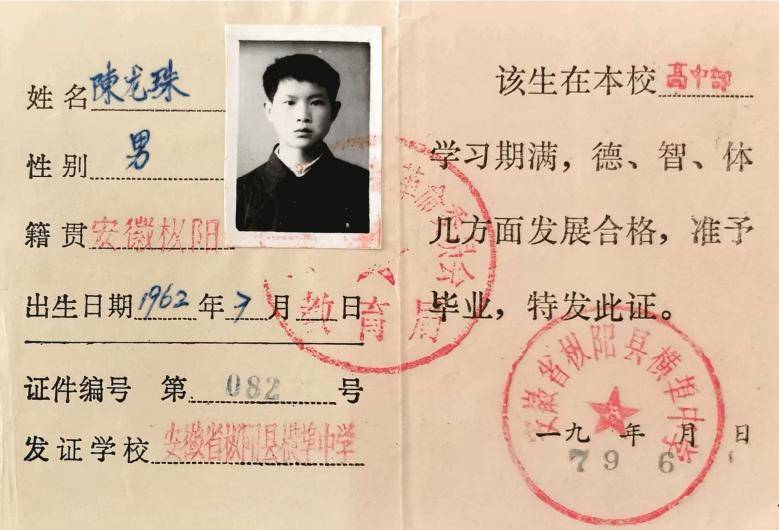 姓名 陳龙珠
性别 男
籍贯 安徽枞阳
出生日期 1962 年 7 月 日
证件编号 第 082 号
发证学校 安徽省枞阳县横埠中学
革命委员会
教育局
该生在本校 高中部
学习期满，德、智、体
几方面发展合格，准予
毕业，特发此证。
安徽省枞阳县横埠中学
一九 年 月 日
79 6